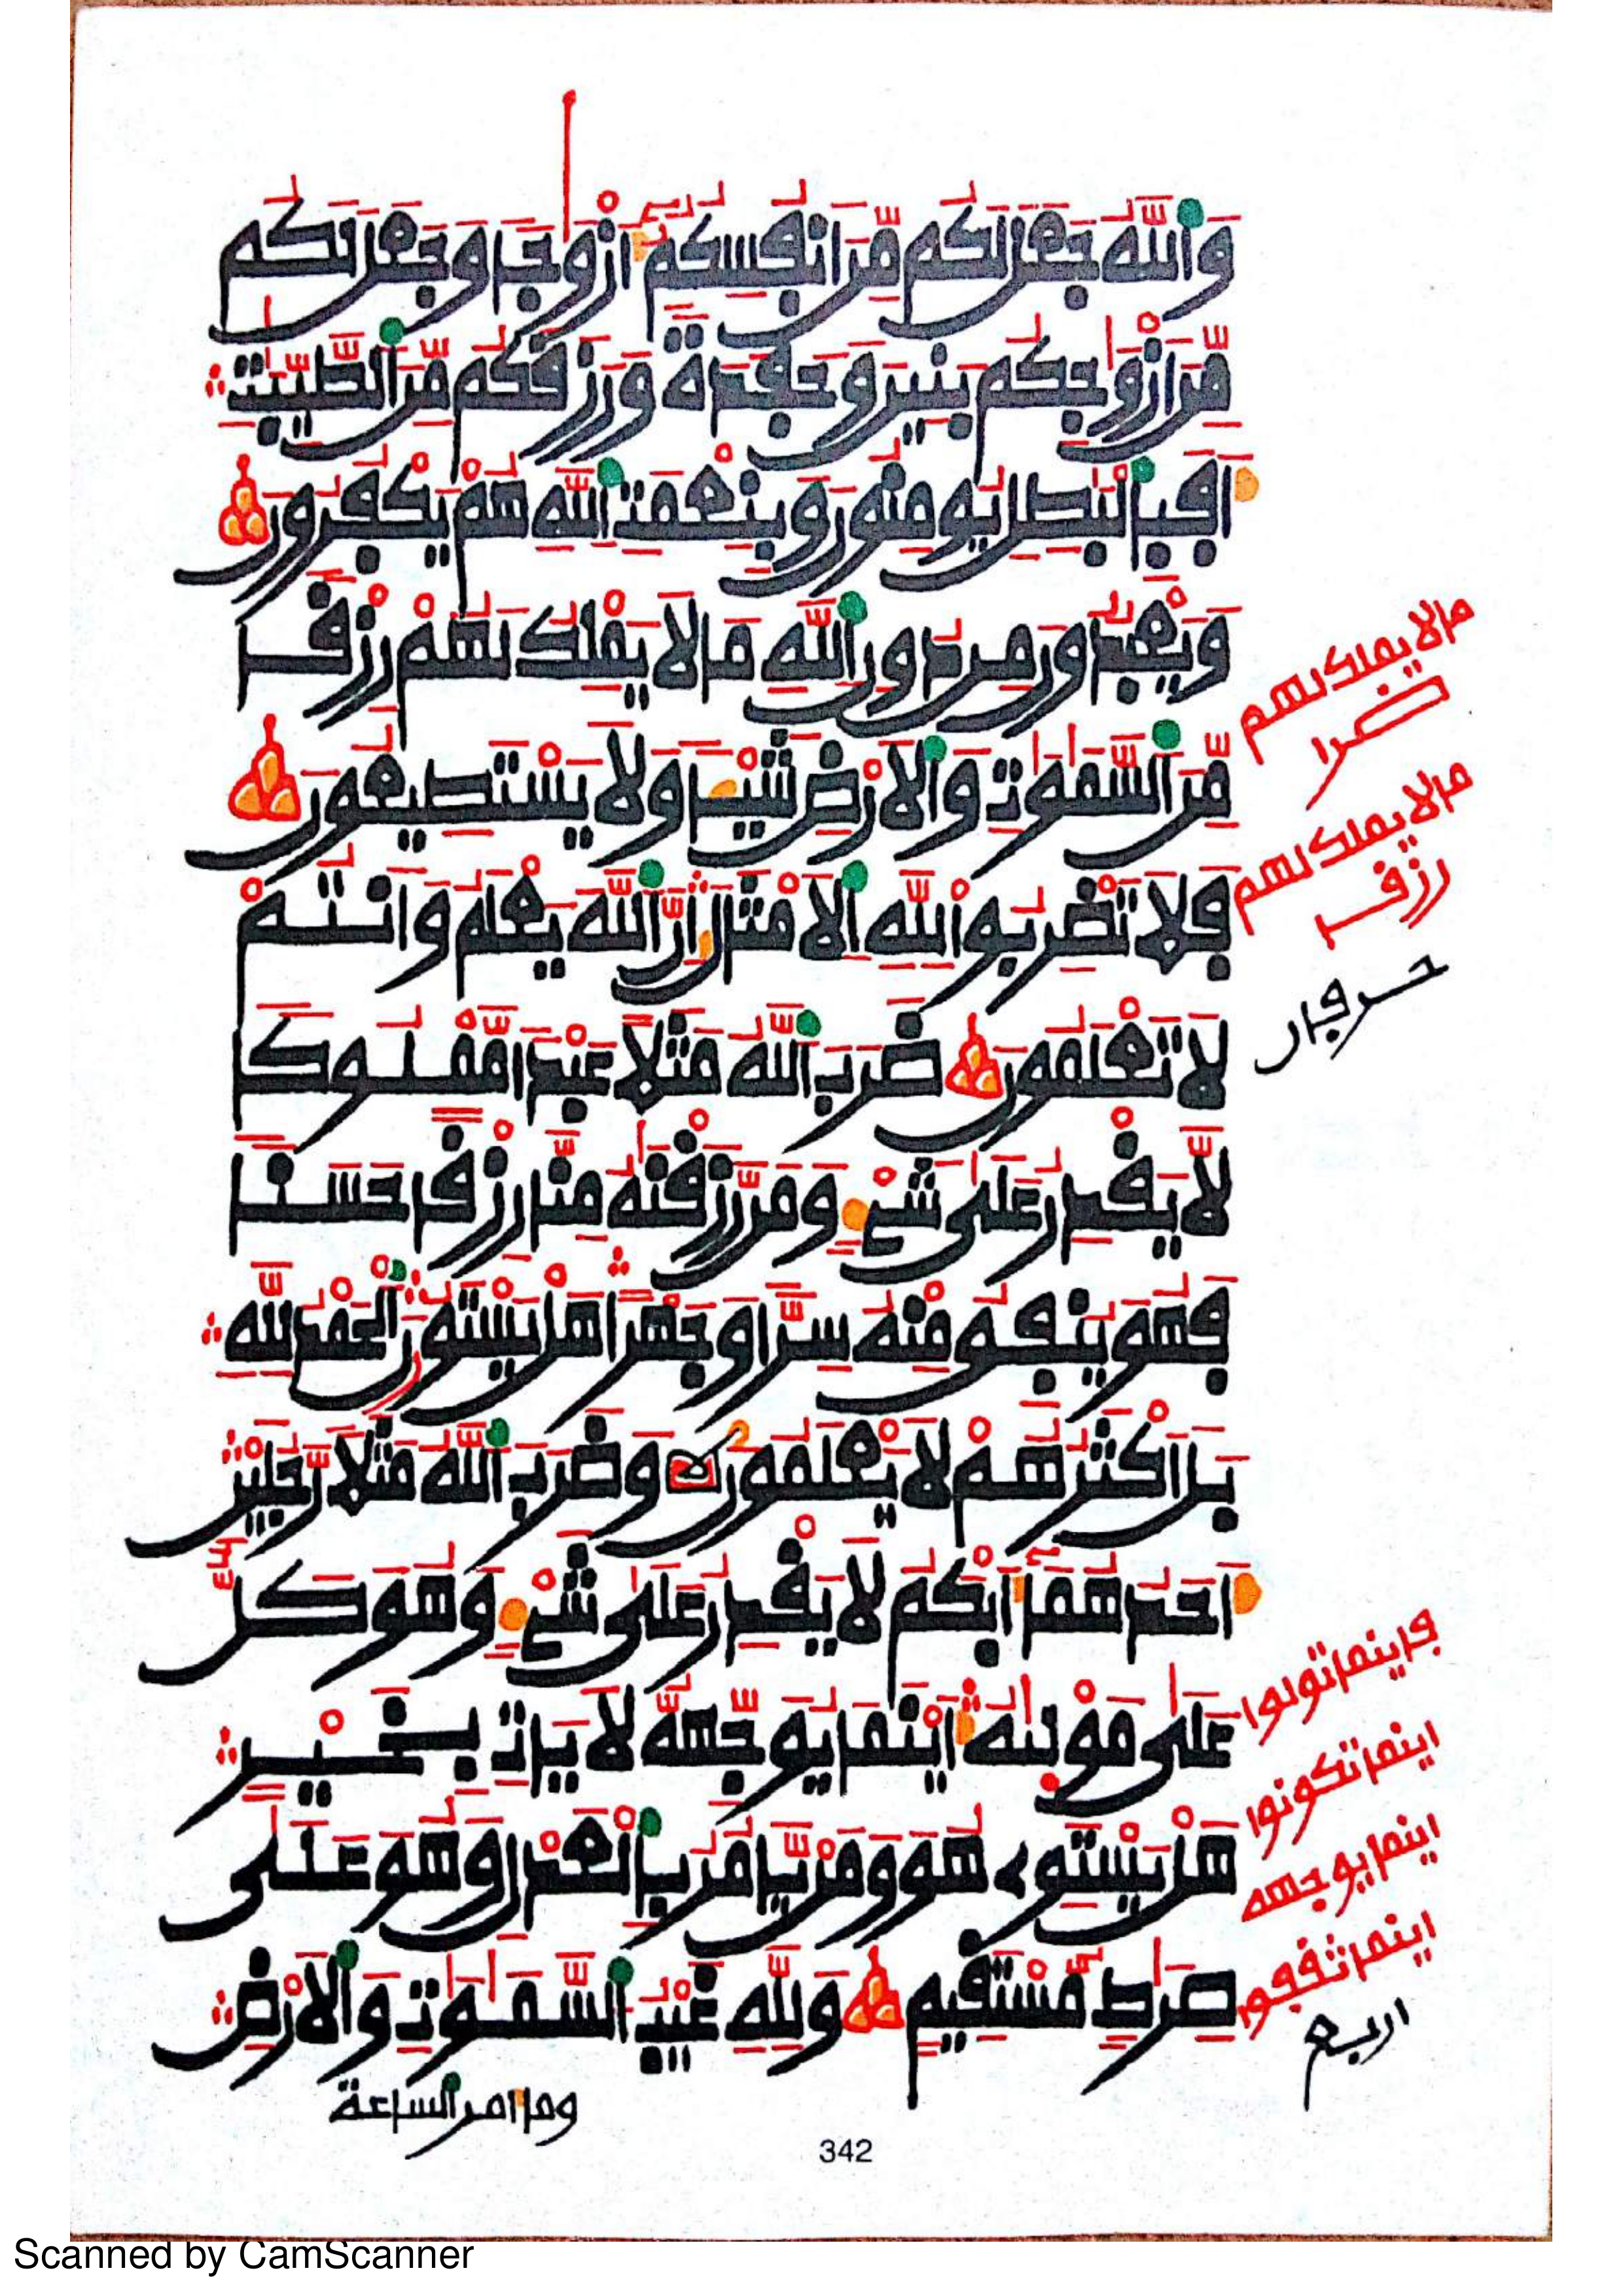 وَاللَّهُ جَعَلَ لَكُم مِّنَ اَنفُسِكُمُۥٓ أَزْوَٰجاً وَجَعَلَ لَكُم
مِّنَ اَزْوَٰجِكُم بَنِينَ وَحَفَدَةً وَرَزَقَكُم مِّنَ الطَّيِّبَٰتِ
أَفَبِالْبَٰطِلِ يُومِنُونَ وَبِنِعْمَتِ اللَّهِ هُمْ يَكْفُرُونَ
وَيَعْبُدُونَ مِن دُونِ اللَّهِ مَا لَا يَمْلِكُ لَهُمْ رِزْقاً
مِّنَ السَّمَٰوَٰتِ وَالَارْضِ شَيْـٔاً وَلَا يَسْتَطِيعُونَ
فَلَا تَضْرِبُوا لِلهِ الَامْثَالَ إِنَّ اللَّهَ يَعْلَمُ وَأَنتُمْ
لَا تَعْلَمُونَ ضَرَبَ اللَّهُ مَثَلاً عَبْداً مَّمْلُوكاً
لَّا يَقْدِرُ عَلَىٰ شَيْءٍ وَمَن رَّزَقْنَٰهُ مِنَّا رِزْقاً حَسَناً
فَهُوَ يُنفِقُ مِنْهُ سِرّاً وَجَهْراً هَلْ يَسْتَوُۥنَ الْحَمْدُ لِلَّهِ
بَلَ اَكْثَرُهُمْ لَا يَعْلَمُونَ وَضَرَبَ اللَّهُ مَثَلاً رَّجُلَيْنِ
أَحَدُهُمَآ أَبْكَمُ لَا يَقْدِرُ عَلَىٰ شَيْءٍ وَهُوَ كَلٌّ
عَلَىٰ مَوْلَىٰهُ أَيْنَمَا يُوَجِّههُّ لَا يَاتِ بِخَيْرٍ
هَلْ يَسْتَوِي هُوَ وَمَن يَّامُرُ بِالْعَدْلِ وَهُوَ عَلَىٰ
صِرَٰطٍ مُّسْتَقِيمٍ وَلِلَّهِ غَيْبُ السَّمَٰوَٰتِ وَالَارْضِ
وما امر الساعة
ما لا يملك لهم
ضرا
ما لا يملك لهم
رزقا
حرفان
فاينما تولوا
اينما تكونوا
اينما يوجهه
اينما ثقفوا
اربع
342
Scanned by CamScanner